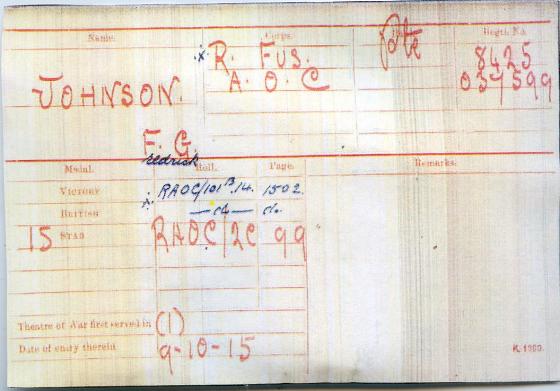 Name. Corps. Rank Regtl. No.
x R. Fus. Pte 8425
JOHNSON. A. O. C 037599
F. G.
redrick
Medal. Roll. Page. Remarks.
Victory x RAOC/101 B.14. 1502.
British — do — do.
15 Star RAOC/2C 99
Theatre of War first served in (1)
Date of entry therein 9-10-15
K. 1380.